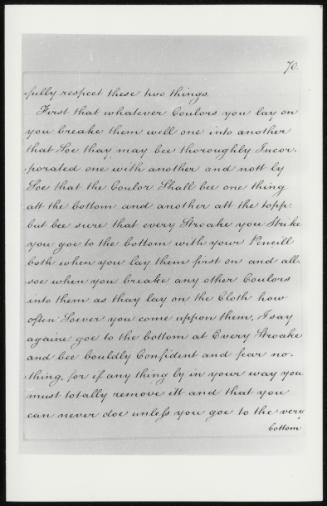 70.
-fully respect these two things.
First that whatever Coulors you lay on
you breake them well one into another
that Soe thay may bee thoroughly Incor-
-porated one with another and nott by
Soe that the Coulor Shall bee one thing
att the bottom and another att the topp.
but bee sure that every Stroake you Strike
you goe to the bottom with your Pencill
both when you lay them first on and all-
soe when you breake any other Coulors
into them as thay lay on the Cloth how
often Soever you come uppon them, I say
againe goe to the bottom at Every Stroake
and bee Bouldly Confident and fear no-
-thing, for if any thing ly in your way you
must totally remove itt and that you
can never doe unless you goe to the very
bottom